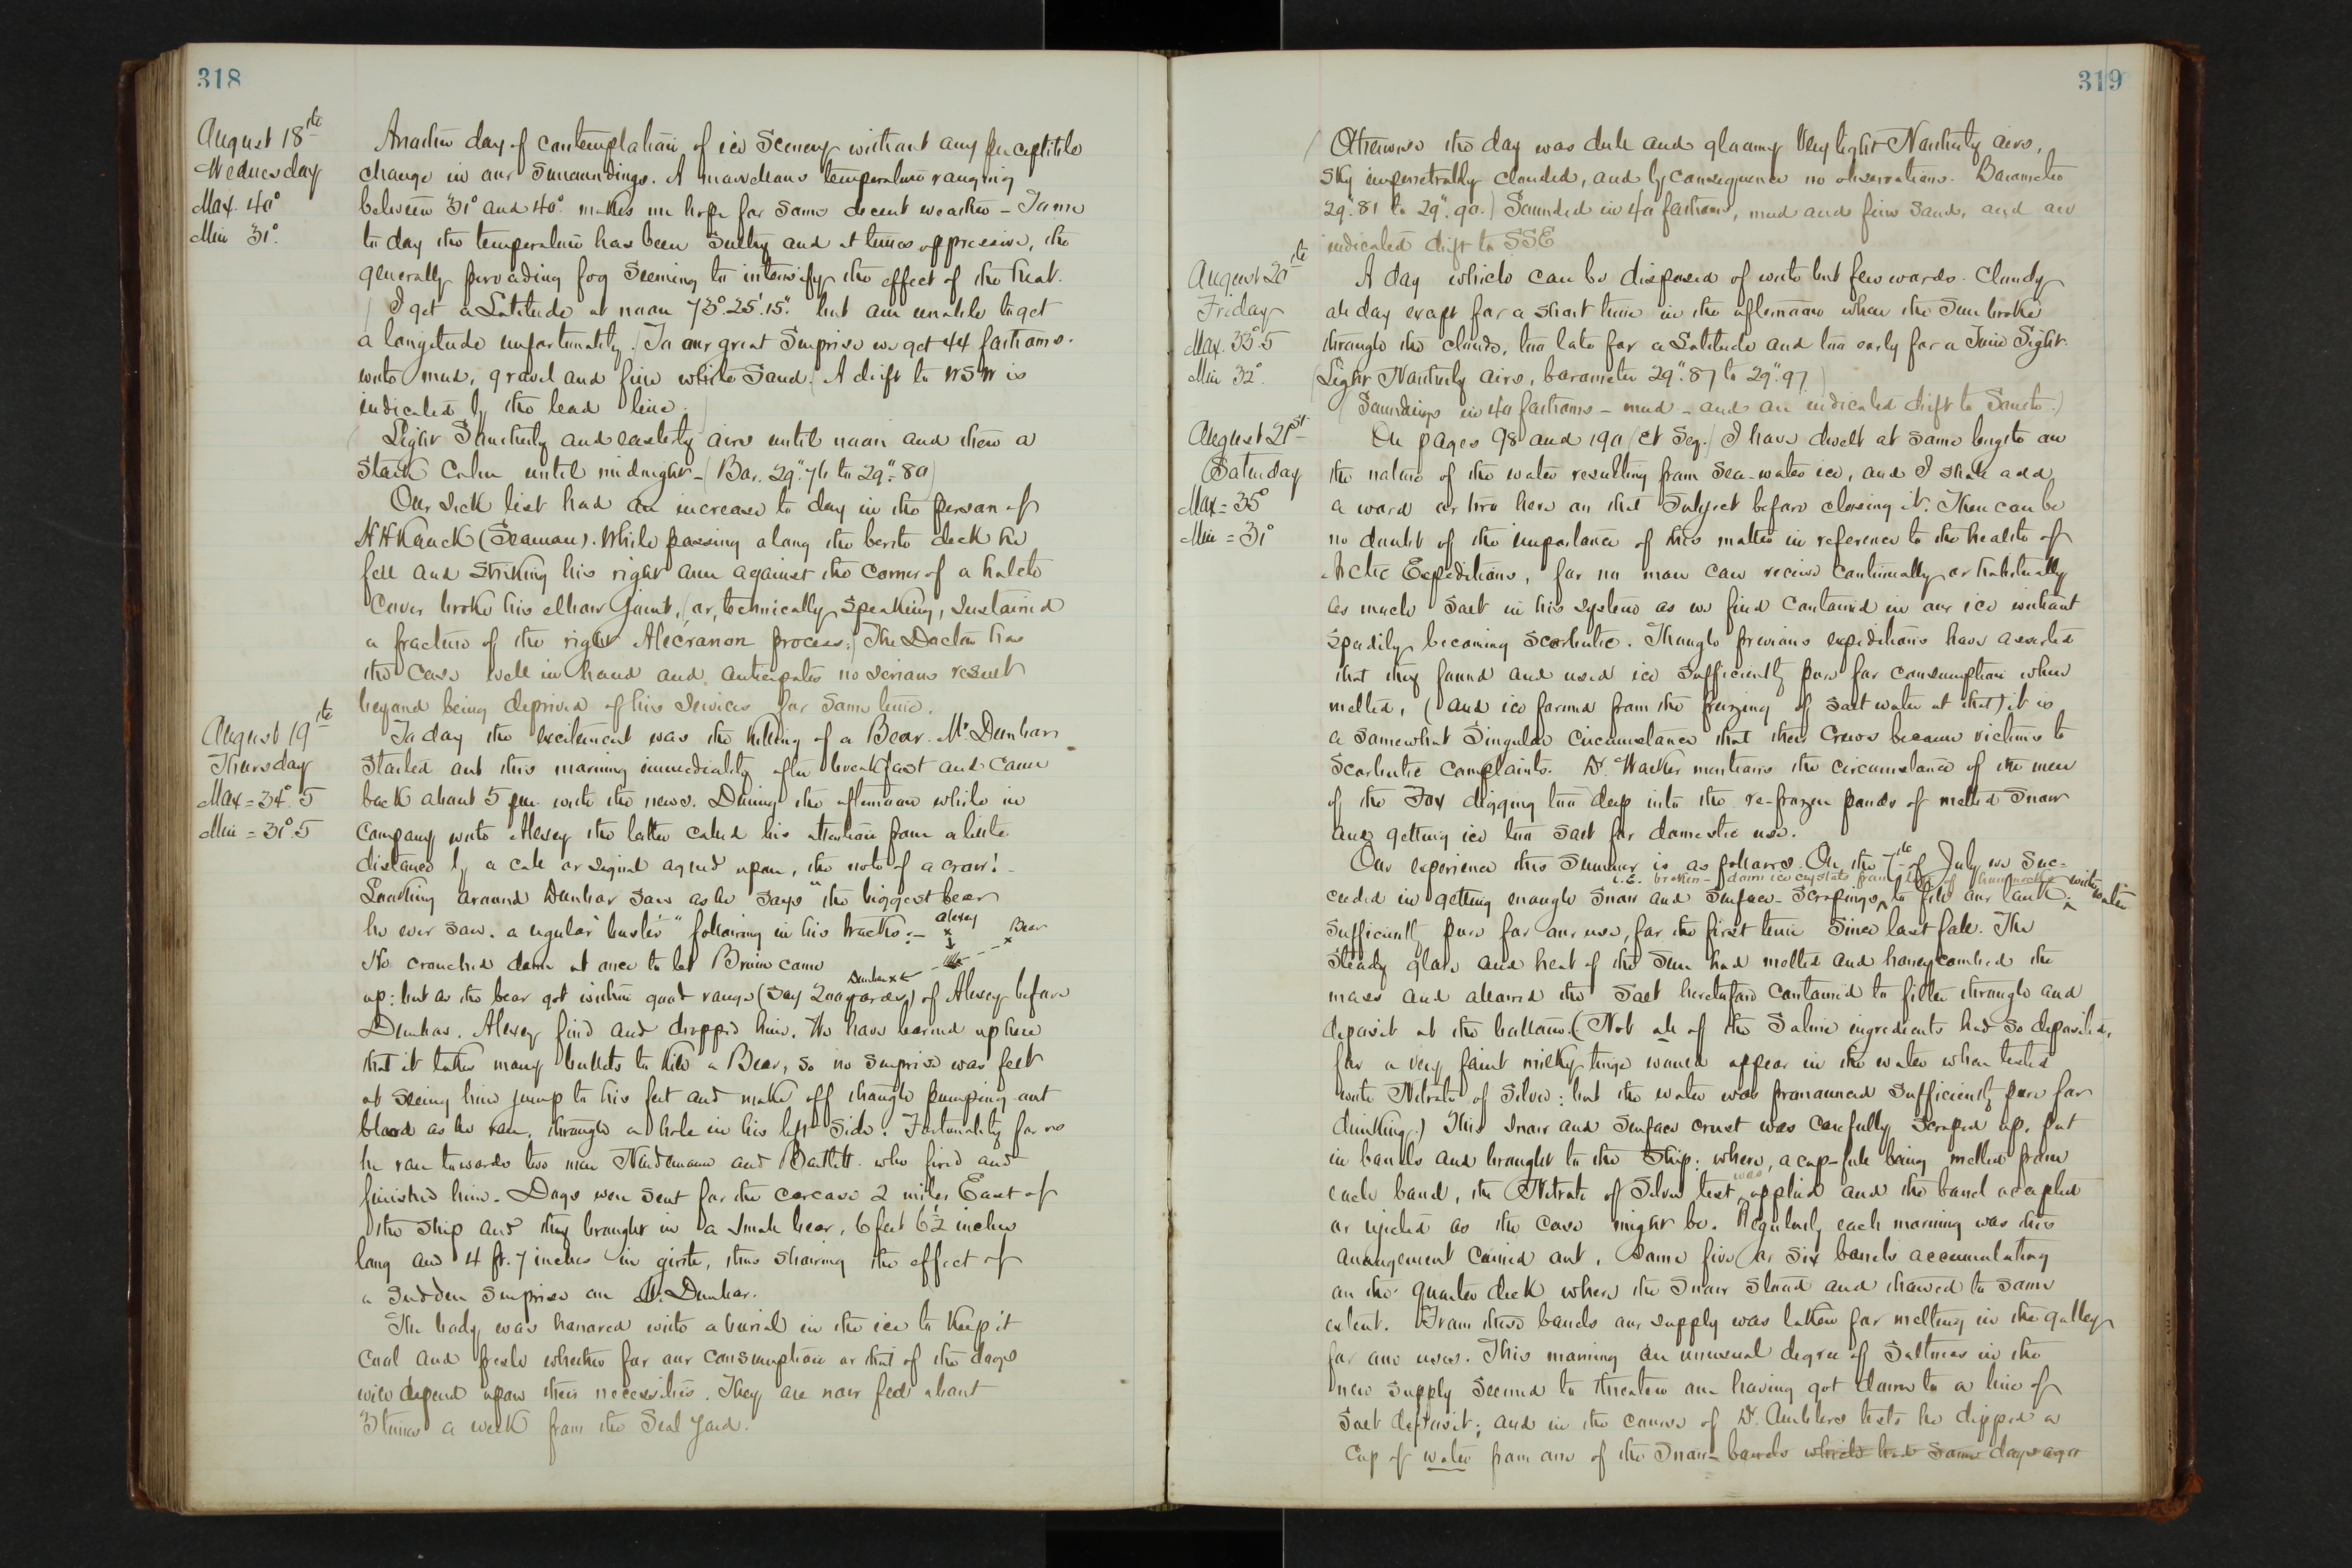 318
August 18th
Wednesday
Max. 40°
Min 31°.
Another day of contemplation of ice scenery without any perceptible
change in our surroundings. A marvelous temperature ranging
between 31° and 40° makes me hope for some decent weather - To me
to day the temperature has been sultry and at times oppressive, the
generally pervading fog seeming to intensify the effect of the heat.
(I get a Latitude at noon 73°.25'.15". but am unable to get
a longitude unfortunately. To our great surprise we get 44 fathoms.
with mud, gravel and fine white sand. A drift to WSW is
indicated by the lead line.)
(Light Southerly and easterly airs until noon and then a
stark calm until midnight - (Bar. 29".76 to 29".80)
Our sick list had an increase to day in the person of
H H Kaack (Seaman). While passing along the berth deck he
fell and striking his right arm against the corner of a hatch
cover broke his elbow joint, (or, technically speaking, sustained
a fracture of the right Alecranon process.) The Doctor has
the case well in hand and anticipates no serious result
beyond being deprived of his services for some time.
August 19th
Thursday
Max = 34°.5
Min = 31°.5
To day the excitement was the killing of a Bear. Mr Dunbar
started out this morning immediately after breakfast and came
back about 5 pm with the news. During the afternoon while in
company with Alexey the latter called his attention from a little
distance by a call or signal agreed upon, the note of a crow!
Looking around Dunbar saw as he says "the biggest bear
he ever saw. a regular buster" following in his tracks:-
Alexey
Bear
Dunbar x
He crouched down at once to let Bruin come
up: but as the bear got within good range (say 200 yards) of Alexey before
Dunbar. Alexey fired and dropped him. We have learned up here
that it takes many bullets to kill a Bear, so no surprise was felt
at seeing him jump to his feet and make off though pumping out
blood as he ran, through a hole in his left side. Fortunately for us
he ran towards two men Nindemann and Bartlett. who fired and
finished him. Dogs were sent for the carcase 2 miles East of
the ship and they brought in a small bear, 6 feet 6½ inches
long and 4 ft. 7 inches in girth, thus showing the effect of
a sudden surprise on Mr. Dunbar.
The body was honored with a burial in the ice to keep it
cool and fresh whether for our consumption or that of the dogs
will depend upon their necessities. They are now fed about
3 times a week from the Seal yard.
319
(Otherwise the day was dull and gloomy Very light Northerly airs,
sky impenetrably clouded, and by consequence no observations. Barometer
29".81 to 29".90.) Sounded in 40 fathoms, mud and fine sand, and an
indicated drift to SSE
August 20th
Friday
Max. 33°.5
Min 32°.
A day which can be disposed of with but few words. Cloudy
all day except for a short time in the afternoon when the sun broke
through the clouds, too late for a Latitude and too early for a Time Sight.
(Light Northerly airs, barometer 29".87 to 29".97)
(Soundings in 40 fathoms - mud - and an indicated drift to South.)
August 21st
Saturday
Max = 35°
Min = 31°
On pages 98 and 190 (et Seq.) I have dwelt at some length on
the nature of the water resulting from sea-water ice, and I shall add
a word or two here on that subject before closing it. There can be
no doubt of the importance of this matter in reference to the health of
Arctic Expeditions, for no man can receive continually or habitually
as much salt in his system as we find contained in our ice without
speedily becoming scorbutic. Though previous expeditions have asserted
that they found and used ice sufficiently pure for consumption when
melted, (and ice formed from the freezing of salt water at that) it is
a somewhat singular circumstance that their crews became victims to
scorbutic complaints. Dr. Walker mentions the circumstance of the men
of the Fox digging too deep into the re-frozen ponds of melted snow
and getting ice too salt for domestic use.
Our experience this summer is as follows. On the 7th of July we suc-
i.e. broken-down ice crystals from top of hummocks
ceeded in getting enough snow and surface scrapings to fill our tank with water
sufficiently pure for our use, for the first time since last fall. The
steady glare and heat of the sun had melted and honeycombed the
mass and allowed the salt heretofore contained to filter through and
deposit at the bottom. (Not all of the saline ingredients had so deposited,
for a very faint milky tinge would appear in the water when tested
with Nitrate of Silver: but the water was pronounced sufficiently pure for
drinking.) This snow and surface crust was carefully scraped up, put
in barrels and brought to the ship; where, a cup-full being melted from
each barrel, the Nitrate of Silver test was applied and the barrel accepted
or rejected as the case might be. Regularly each morning was this
arrangement carried out, some five or six barrels accumulating
on the quarter deck where the snow stood and thawed to some
extent. From these barrels our supply was taken for melting in the galley
for our uses. This morning an unusual degree of saltness in the
new supply seemed to threaten our having got down to a line of
salt deposit; and in the course of Dr. Ambler's tests he dipped a
cup of water from one of the snow-barrels which had some days ago